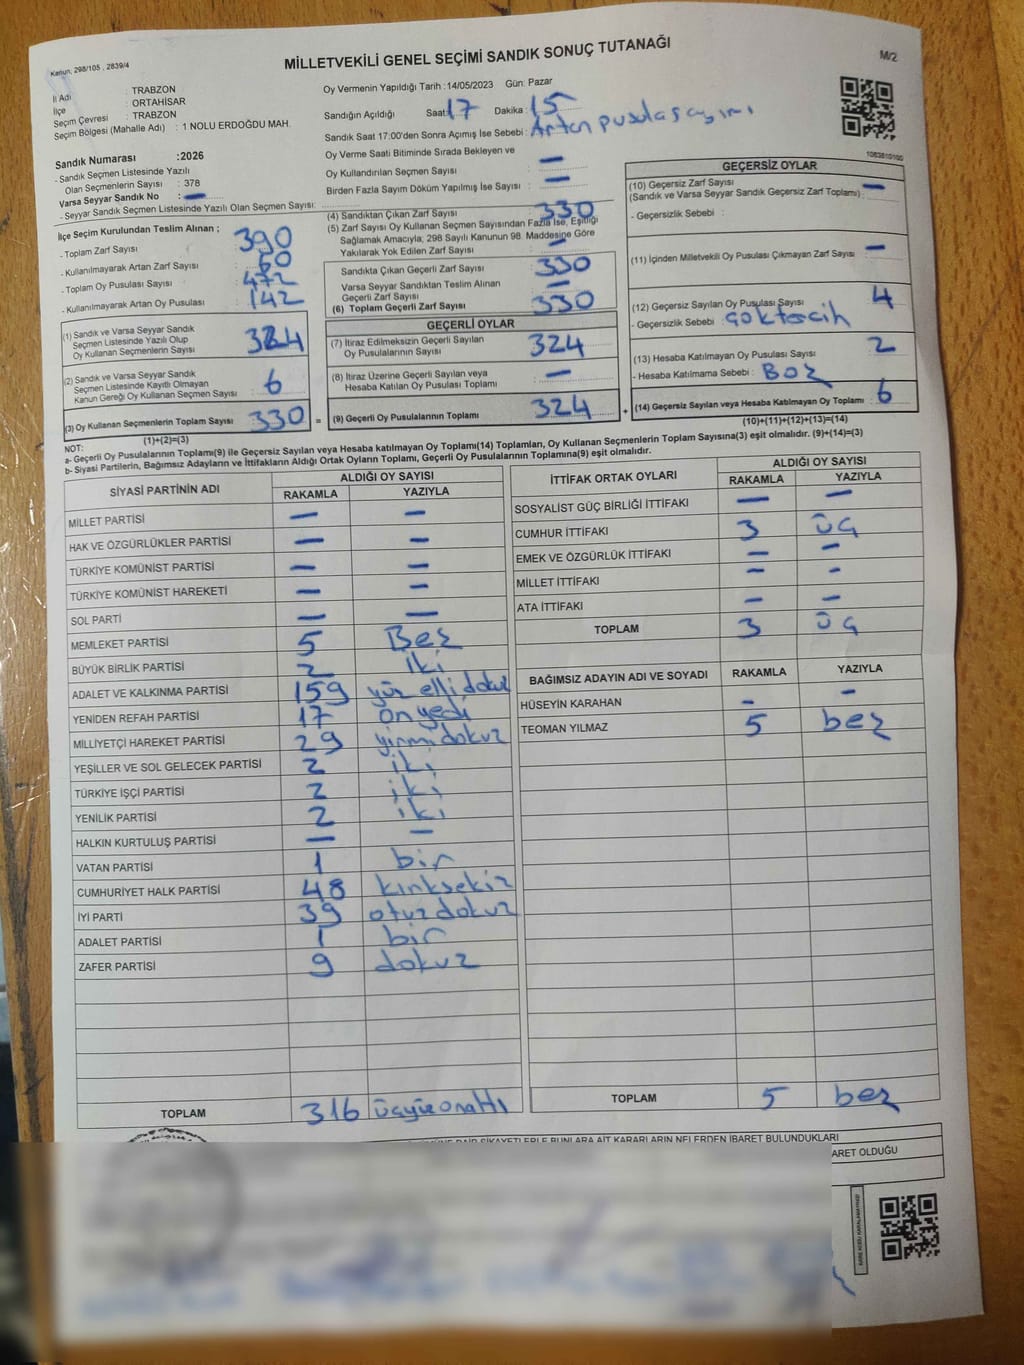 Kanun, 298/105 , 2839/4
MİLLETVEKİLİ GENEL SEÇİMİ SANDIK SONUÇ TUTANAĞI
M/2
İl Adı : TRABZON
İlçe : ORTAHİSAR
Seçim Çevresi : TRABZON
Seçim Bölgesi (Mahalle Adı) : 1 NOLU ERDOĞDU MAH.
Oy Vermenin Yapıldığı Tarih :14/05/2023 Gün: Pazar
Sandığın Açıldığı Saat: 17 Dakika : 15
Sandık Saat 17:00'den Sonra Açımış İse Sebebi : Artan pusula sayımı
Oy Verme Saati Bitiminde Sırada Bekleyen ve
Oy Kullandırılan Seçmen Sayısı —
Birden Fazla Sayım Döküm Yapılmış İse Sayısı —
1083810100
Sandık Numarası :2026
- Sandık Seçmen Listesinde Yazılı
Olan Seçmenlerin Sayısı : 378
Varsa Seyyar Sandık No : —
- Seyyar Sandık Seçmen Listesinde Yazılı Olan Seçmen Sayısı:
İlçe Seçim Kurulundan Teslim Alınan ;
- Toplam Zarf Sayısı : 390
- Kullanılmayarak Artan Zarf Sayısı : 60
- Toplam Oy Pusulası Sayısı : 472
- Kullanılmayarak Artan Oy Pusulası : 142
(1) Sandık ve Varsa Seyyar Sandık
Seçmen Listesinde Yazılı Olup
Oy Kullanan Seçmenlerin Sayısı 324
(2) Sandık ve Varsa Seyyar Sandık
Seçmen Listesinde Kayıtlı Olmayan
Kanun Gereği Oy Kullanan Seçmen Sayısı : 6
(3) Oy Kullanan Seçmenlerin Toplam Sayısı 330 =
(1)+(2)=(3)
(4) Sandıktan Çıkan Zarf Sayısı : 330
(5) Zarf Sayısı Oy Kullanan Seçmen Sayısından Fazla İse, Eşitliği
Sağlamak Amacıyla, 298 Sayılı Kanunun 98. Maddesine Göre
Yakılarak Yok Edilen Zarf Sayısı : —
Sandıkta Çıkan Geçerli Zarf Sayısı 330
Varsa Seyyar Sandıktan Teslim Alınan
Geçerli Zarf Sayısı —
(6) Toplam Geçerli Zarf Sayısı 330
GEÇERLİ OYLAR
(7) İtiraz Edilmeksizin Geçerli Sayılan
Oy Pusulalarının Sayısı 324
(8) İtiraz Üzerine Geçerli Sayılan veya
Hesaba Katılan Oy Pusulası Toplamı —
(9) Geçerli Oy Pusulalarının Toplamı 324 +
GEÇERSİZ OYLAR
(10) Geçersiz Zarf Sayısı
(Sandık ve Varsa Seyyar Sandık Geçersiz Zarf Toplamı) : —
- Geçersizlik Sebebi :
(11) İçinden Milletvekili Oy Pusulası Çıkmayan Zarf Sayısı —
(12) Geçersiz Sayılan Oy Pusulası Sayısı 4
- Geçersizlik Sebebi : Çok tercih
(13) Hesaba Katılmayan Oy Pusulası Sayısı 2
- Hesaba Katılmama Sebebi : Boş
(14) Geçersiz Sayılan veya Hesaba Katılmayan Oy Toplamı 6
(10)+(11)+(12)+(13)=(14)
NOT:
a- Geçerli Oy Pusulalarının Toplamı(9) ile Geçersiz Sayılan veya Hesaba katılmayan Oy Toplamı(14) Toplamları, Oy Kullanan Seçmenlerin Toplam Sayısına(3) eşit olmalıdır. (9)+(14)=(3)
b- Siyasi Partilerin, Bağımsız Adayların ve İttifakların Aldığı Ortak Oyların Toplamı, Geçerli Oy Pusulalarının Toplamına(9) eşit olmalıdır.
SİYASİ PARTİNİN ADI ALDIĞI OY SAYISI
RAKAMLA YAZIYLA
MİLLET PARTİSİ — —
HAK VE ÖZGÜRLÜKLER PARTİSİ — —
TÜRKİYE KOMÜNİST PARTİSİ — —
TÜRKİYE KOMÜNİST HAREKETİ — —
SOL PARTİ — —
MEMLEKET PARTİSİ 5 Beş
BÜYÜK BİRLİK PARTİSİ 2 iki
ADALET VE KALKINMA PARTİSİ 159 yüz elli dokuz
YENİDEN REFAH PARTİSİ 17 on yedi
MİLLİYETÇİ HAREKET PARTİSİ 29 yirmi dokuz
YEŞİLLER VE SOL GELECEK PARTİSİ 2 iki
TÜRKİYE İŞÇİ PARTİSİ 2 iki
YENİLİK PARTİSİ 2 iki
HALKIN KURTULUŞ PARTİSİ — —
VATAN PARTİSİ 1 bir
CUMHURİYET HALK PARTİSİ 48 kırk sekiz
İYİ PARTİ 39 otuz dokuz
ADALET PARTİSİ 1 bir
ZAFER PARTİSİ 9 dokuz
TOPLAM 316 üçyüz on altı
İTTİFAK ORTAK OYLARI ALDIĞI OY SAYISI
RAKAMLA YAZIYLA
SOSYALİST GÜÇ BİRLİĞİ İTTİFAKI — —
CUMHUR İTTİFAKI 3 üç
EMEK VE ÖZGÜRLÜK İTTİFAKI — —
MİLLET İTTİFAKI — —
ATA İTTİFAKI — —
TOPLAM 3 üç
BAĞIMSIZ ADAYIN ADI VE SOYADI RAKAMLA YAZIYLA
HÜSEYİN KARAHAN — —
TEOMAN YILMAZ 5 beş
TOPLAM 5 beş
DAİR ŞİKAYETLERLE BUNLARA AİT KARARLARIN NELERDEN İBARET BULUNDUKLARI
OLDUĞU